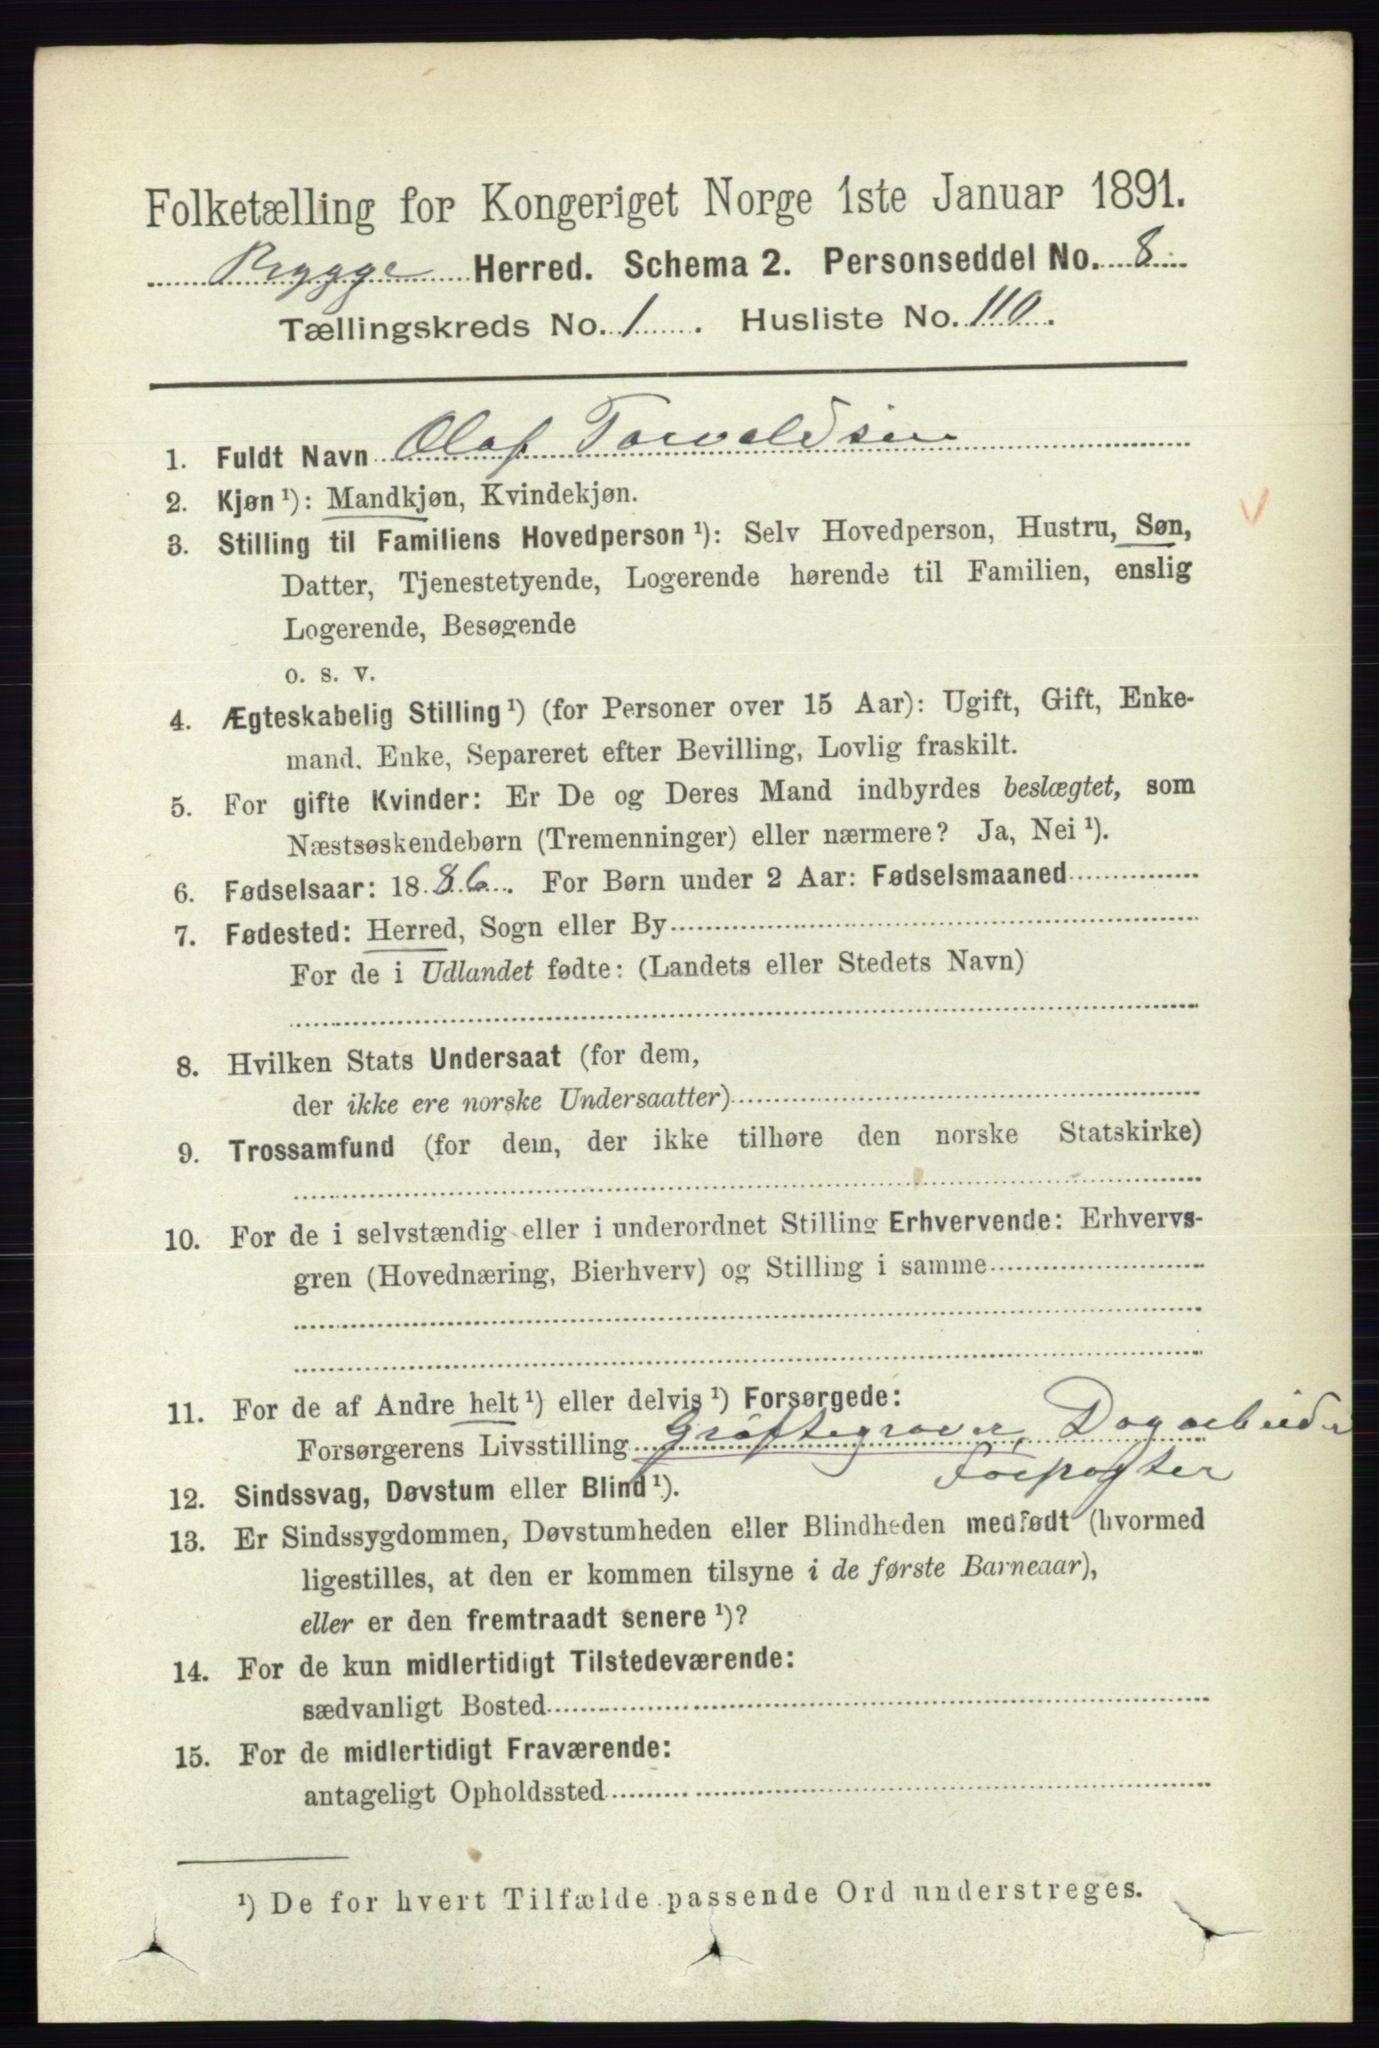 Folketælling for Kongeriget Norge 1ste Januar 1891.
Rygge Herred. Schema 2. Personseddel No. 8
Tællingskreds No. 1. Husliste No. 110.
1. Fuldt Navn Olaf Torvaldsen
2. Kjøn ¹): Mandkjøn, Kvindekjøn.
3. Stilling til Familiens Hovedperson ¹): Selv Hovedperson, Hustru, Søn,
Datter, Tjenestetyende, Logerende hørende til Familien, enslig
Logerende, Besøgende
o. s. v.
4. Ægteskabelig Stilling ¹) (for Personer over 15 Aar): Ugift, Gift, Enke-
mand, Enke, Separeret efter Bevilling, Lovlig fraskilt.
5. For gifte Kvinder: Er De og Deres Mand indbyrdes beslægtet, som
Næstsøskendebørn (Tremenninger) eller nærmere? Ja, Nei ¹).
6. Fødselsaar: 1886. For Børn under 2 Aar: Fødselsmaaned
7. Fødested: Herred, Sogn eller By
For de i Udlandet fødte: (Landets eller Stedets Navn)
8. Hvilken Stats Undersaat (for dem,
der ikke ere norske Undersaatter)
9. Trossamfund (for dem, der ikke tilhøre den norske Statskirke)
10. For de i selvstændig eller i underordnet Stilling Erhvervende: Erhvervs-
gren (Hovednæring, Bierhverv) og Stilling i samme
11. For de af Andre helt ¹) eller delvis ¹) Forsørgede:
Forsørgerens Livsstilling Grøftegraver, Dagarbeider
Forpagter
12. Sindssvag, Døvstum eller Blind ¹).
13. Er Sindssygdommen, Døvstumheden eller Blindheden medfødt (hvormed
ligestilles, at den er kommen tilsyne i de første Barneaar),
eller er den fremtraadt senere ¹)?
14. For de kun midlertidigt Tilstedeværende:
sædvanligt Bosted
15. For de midlertidigt Fraværende:
antageligt Opholdssted
¹) De for hvert Tilfælde passende Ord understreges.